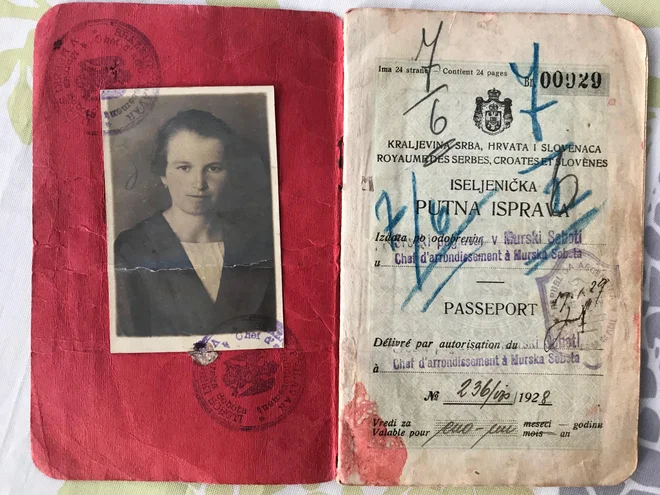 Ima 24 strane - Contient 24 pages
Br. 00929
7/6
7
KRALJEVINA SRBA, HRVATA I SLOVENACA
ROYAUME DES SERBES, CROATES ET SLOVÈNES
ISELJENIČKA
PUTNA ISPRAVA
7/6
Izdata po odobrenju
v Murski Soboti
u
Chef d'arrondissement à Murska Sobota
PASSEPORT
Délivré par autorisation du
Murski Soboti
à
Chef d'arrondissement à Murska Sobota
№ 236/ 1928
Vredi za meseci - godinu
Valable pour eno - un mois - an